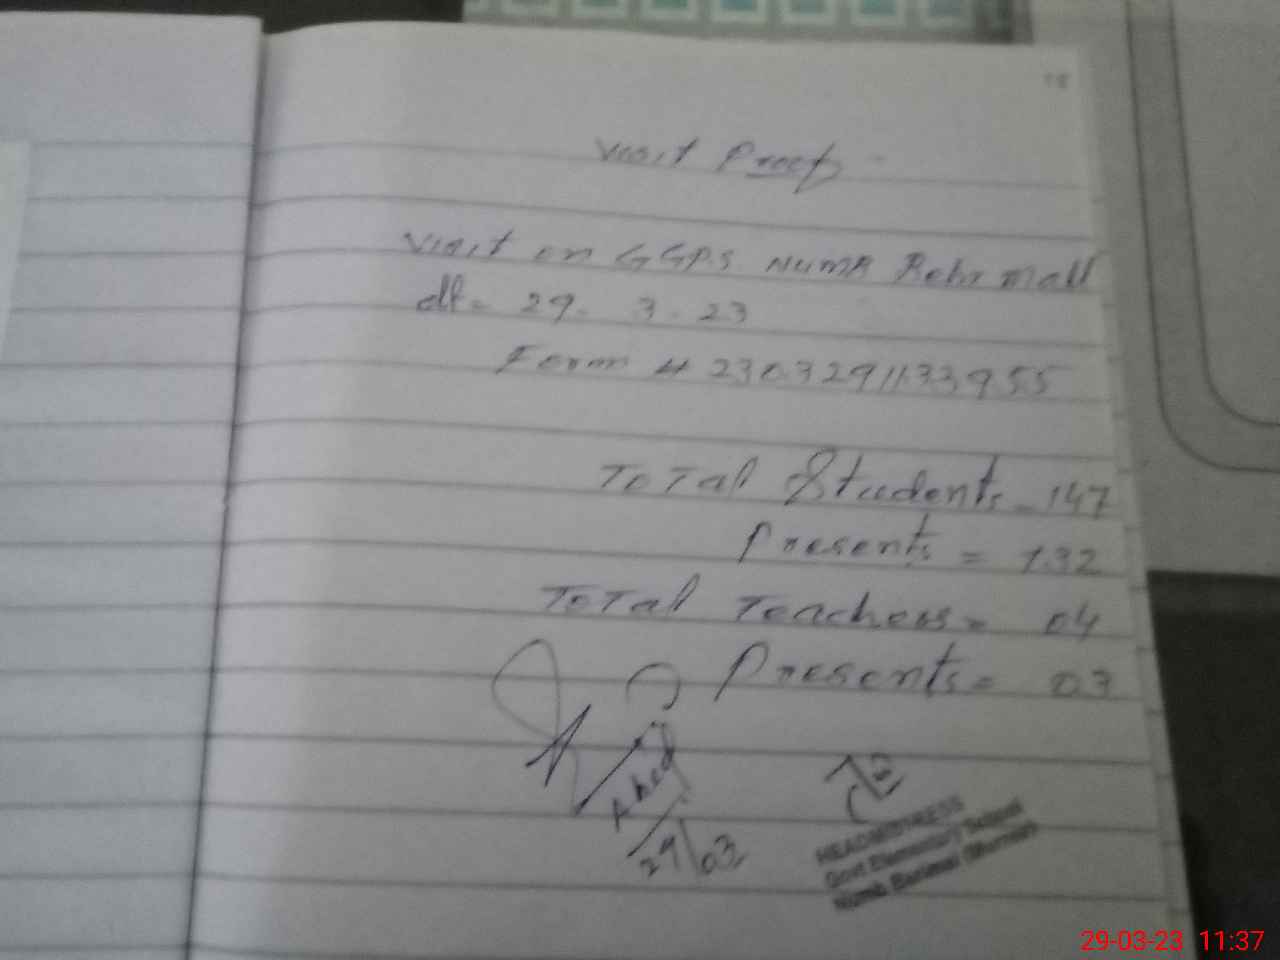 18
Visit Proof
Visit on GGPS NUMB Rohr mall
dt= 29. 3. 23
Form # 230329113 3955
Total Students - 147
Presents = 132
Total Teachers = 04
Presents = 03
29/03
HEADMISTRESS
Govt Elementary School
Numb
29-03-23 11:37